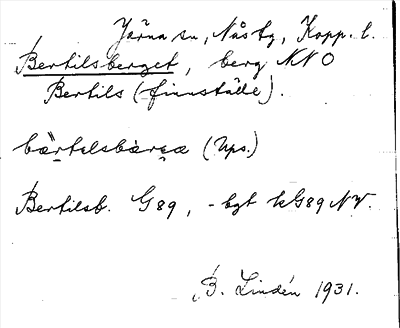 Järna sn, Nås tg, Kopp. l.
Bertilsberget, berg NNO
Bertils (finnställe).
bærtəlsbærjæ (Ups.)
Bertilsb. G89, -bgt kG89NV.
B. Lindén 1931.